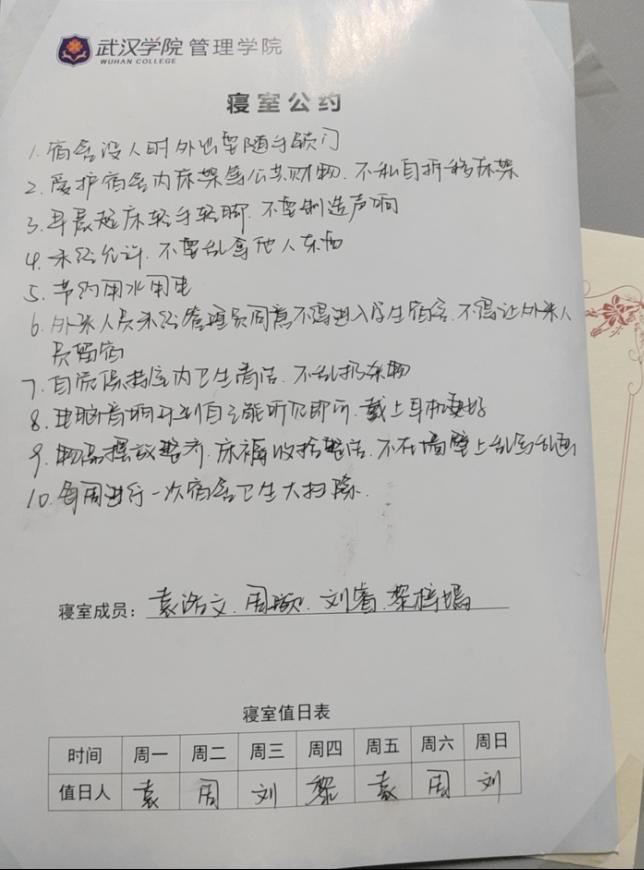 武汉学院 管理学院
WUHAN COLLEGE
寝室公约
1. 宿舍没人时外出要随手锁门
2. 爱护宿舍内床架等公共财物. 不私自拆移床架
3. 早晨起床轻手轻脚. 不要制造声响
4. 未经允许. 不要乱拿他人东西
5. 节约用水用电
6. 外来人员未经管理员同意不得进入学生宿舍. 不得让外来人
员留宿
7. 自觉保持室内卫生清洁. 不乱扔杂物
8. 电脑音响开到自己能听见即可. 戴上耳机更好
9. 物品摆放整齐. 床褥收拾整洁. 不在墙壁上乱写乱画
10. 每周进行一次宿舍卫生大扫除.
寝室成员: 袁浩文. 周. 刘. 黎梓
寝室值日表
时间 周一 周二 周三 周四 周五 周六 周日
值日人 袁 周 刘 黎 袁 周 刘